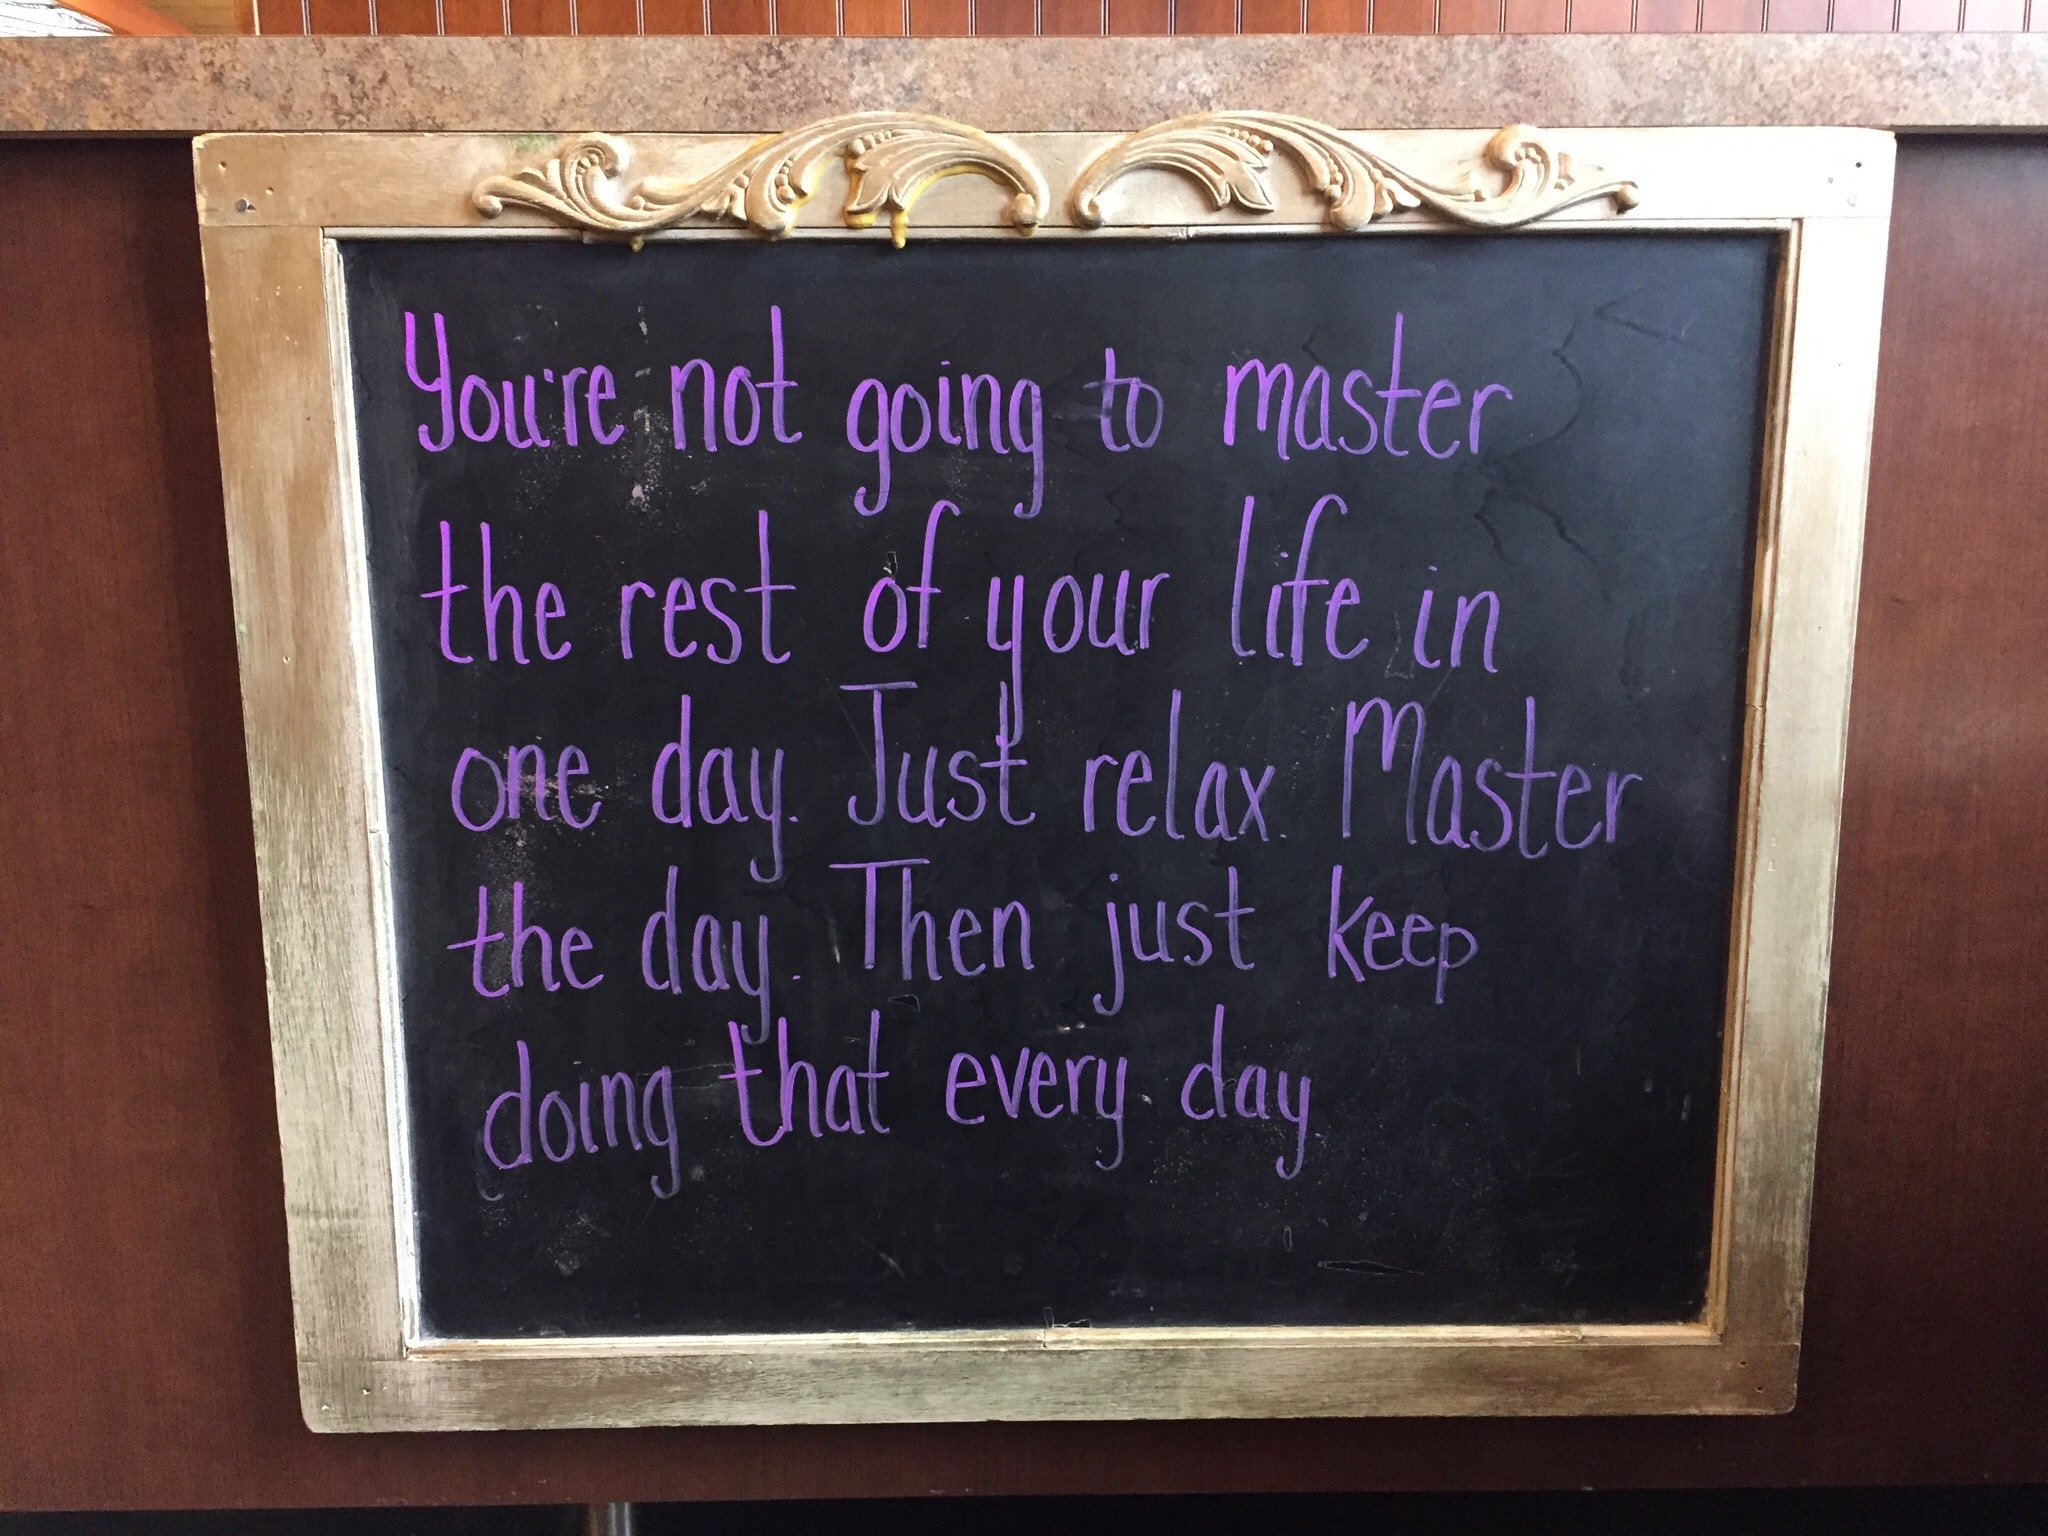 You're not going to master
the rest of your life in
one day. Just relax. Master
the day. Then just keep
doing that every day